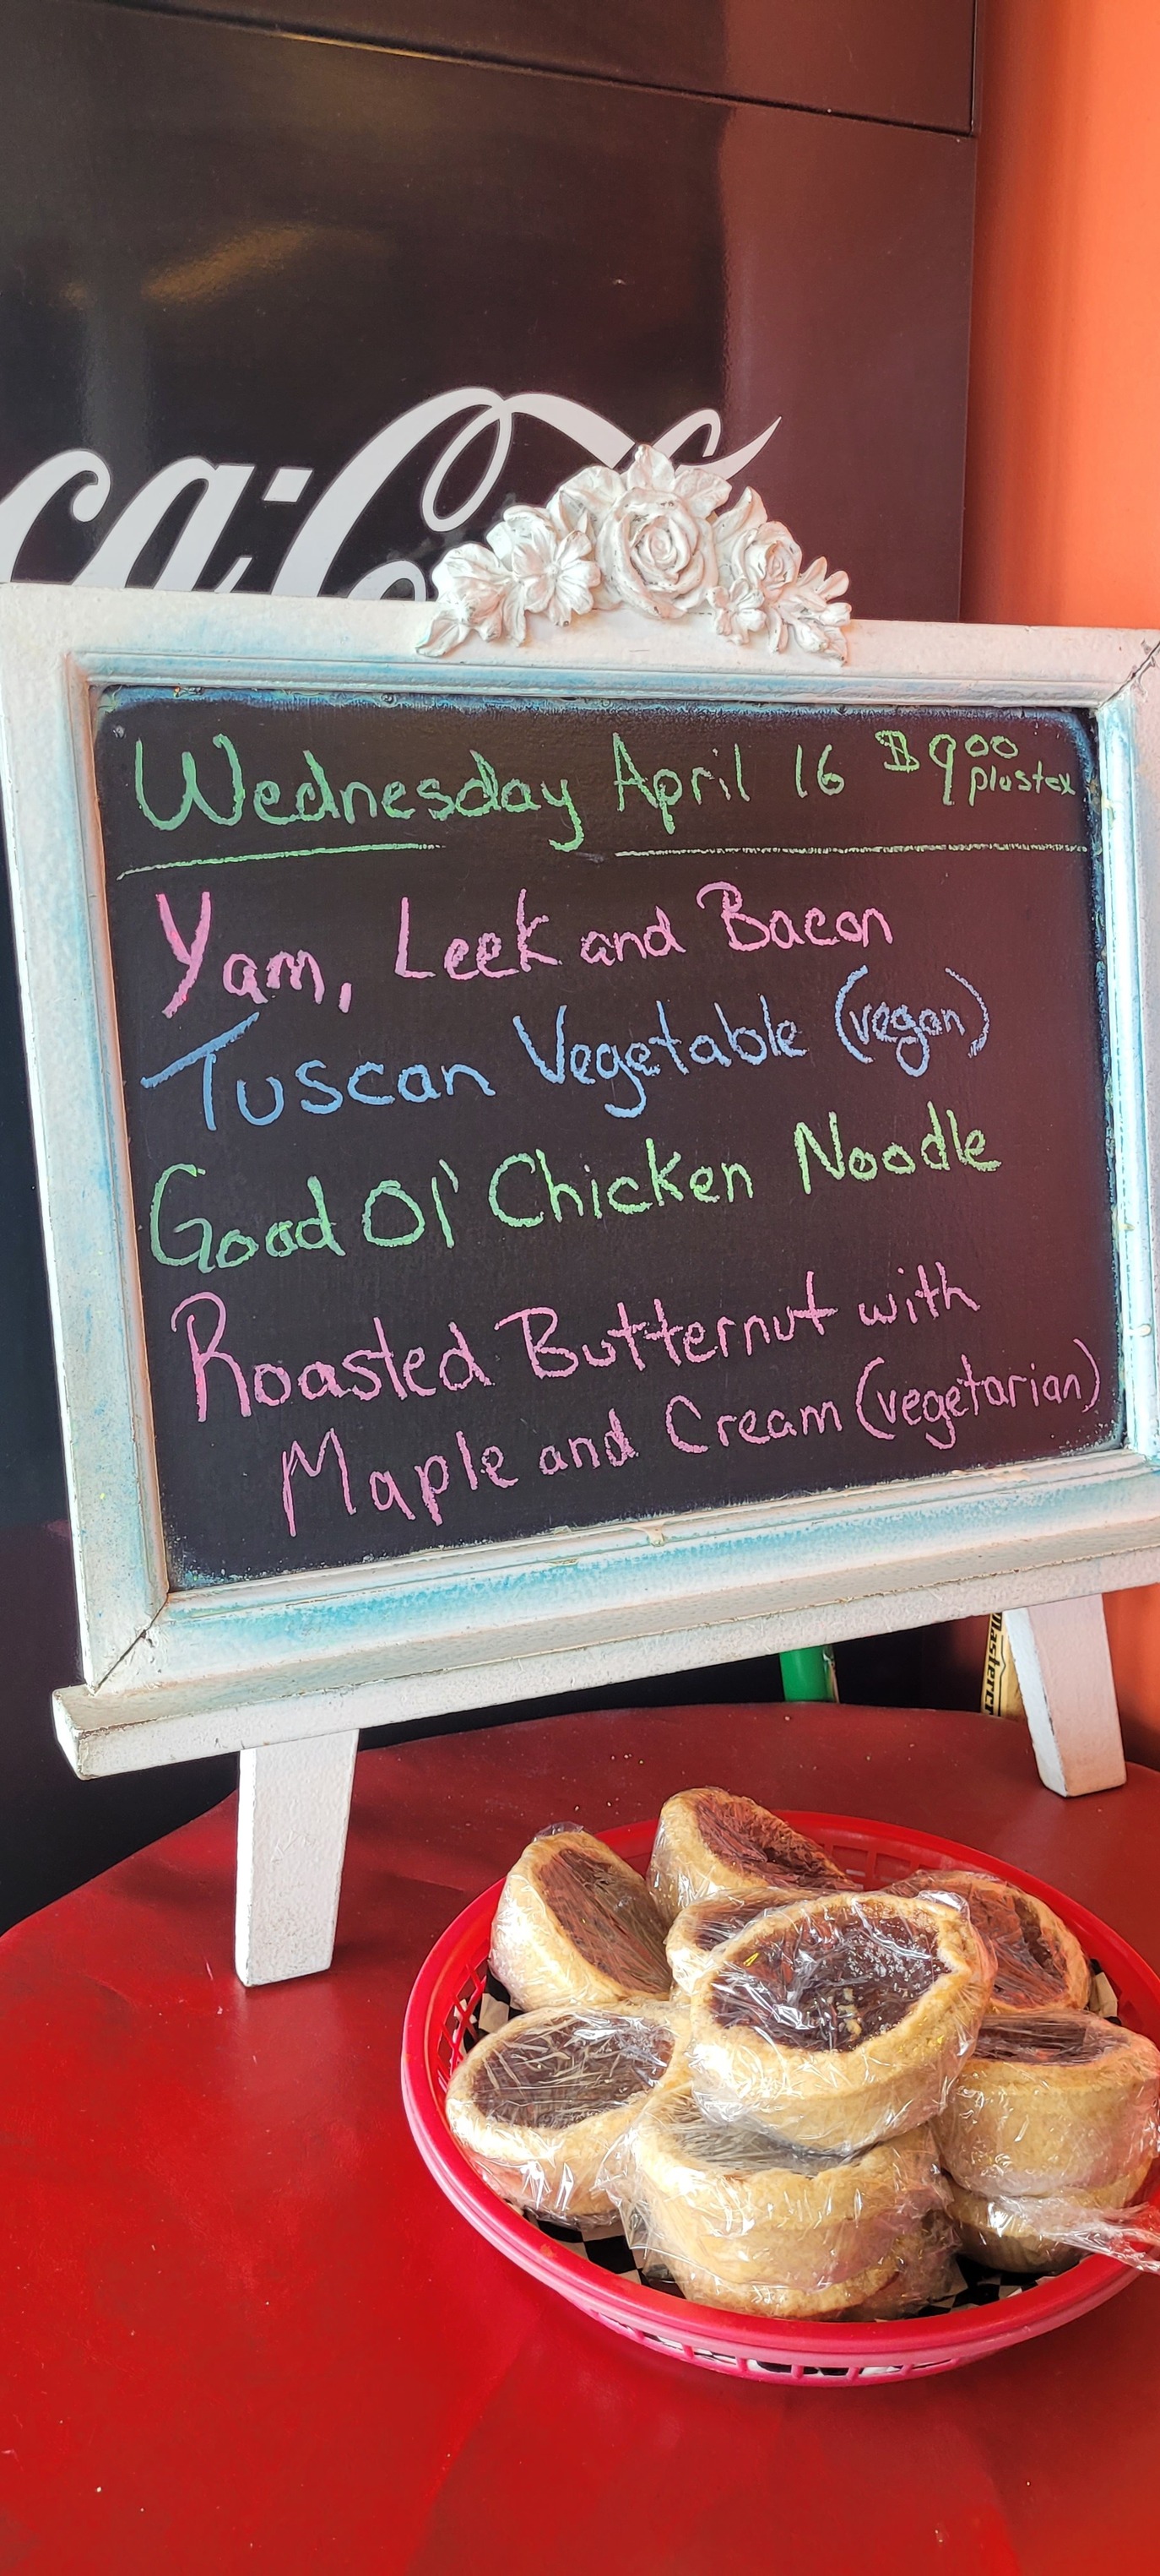 ca-Co
Wednesday April 16 $9.00 plus tax
Yam, Leek and Bacon
Tuscan Vegetable (vegan)
Good Ol' Chicken Noodle
Roasted Butternut with
Maple and Cream (vegetarian)
Mastercr